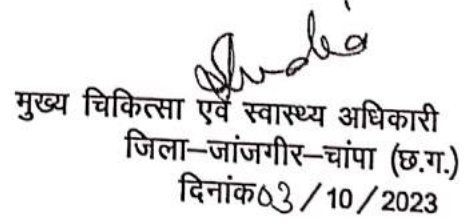 मुख्य चिकित्सा एवं स्वास्थ्य अधिकारी
जिला–जांजगीर–चांपा (छ.ग.)
दिनांक03 / 10 / 2023